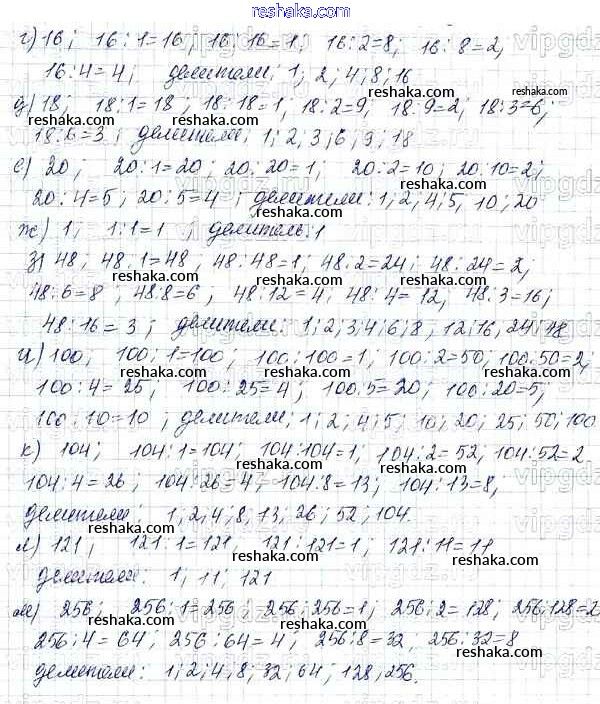 reshaka.com
г) 16; 16:1=16; 16:16=1; 16:2=8; 16:8=2,
16:4=4; делители: 1; 2; 4; 8; 16
д) 18; 18:1=18; 18:18=1; 18:2=9; 18:9=2; 18:3=6;
18:6=3; делители: 1; 2; 3; 6; 9; 18
е) 20; 20:1=20; 20:20=1; 20:2=10; 20:10=2;
20:4=5; 20:5=4; делители: 1; 2; 4; 5; 10; 20
ж) 1; 1:1=1; делитель: 1
з) 48; 48:1=48; 48:48=1; 48:2=24; 48:24=2;
48:6=8; 48:8=6; 48:12=4; 48:4=12; 48:3=16;
48:16=3; делители: 1; 2; 3; 4; 6; 8; 12; 16; 24; 48
и) 100; 100:1=100; 100:100=1; 100:2=50; 100:50=2;
100:4=25; 100:25=4; 100:5=20; 100:20=5;
100:10=10; делители: 1; 2; 4; 5; 10; 20; 25; 50; 100
к) 104; 104:1=104; 104:104=1; 104:2=52; 104:52=2
104:4=26; 104:26=4; 104:8=13; 104:13=8;
делители: 1, 2, 4; 8; 13; 26; 52; 104.
л) 121; 121:1=121, 121:121=1; 121:11=11
делители: 1; 11; 121
м) 256; 256:1=256; 256:256=1; 256:2=128; 256:128=2
256:4=64; 256:64=4; 256:8=32; 256:32=8
делители: 1; 2; 4; 8; 32; 64; 128, 256.